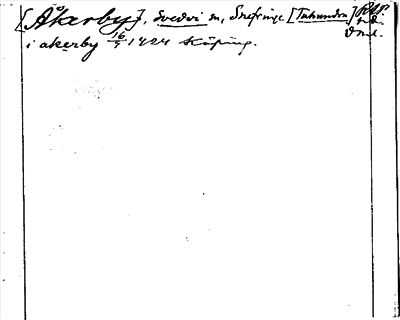 [Åkerby], Svedvi sn, Snefringe [Tuhundra] RAp.
i akerby 16/9 1424 Köping.